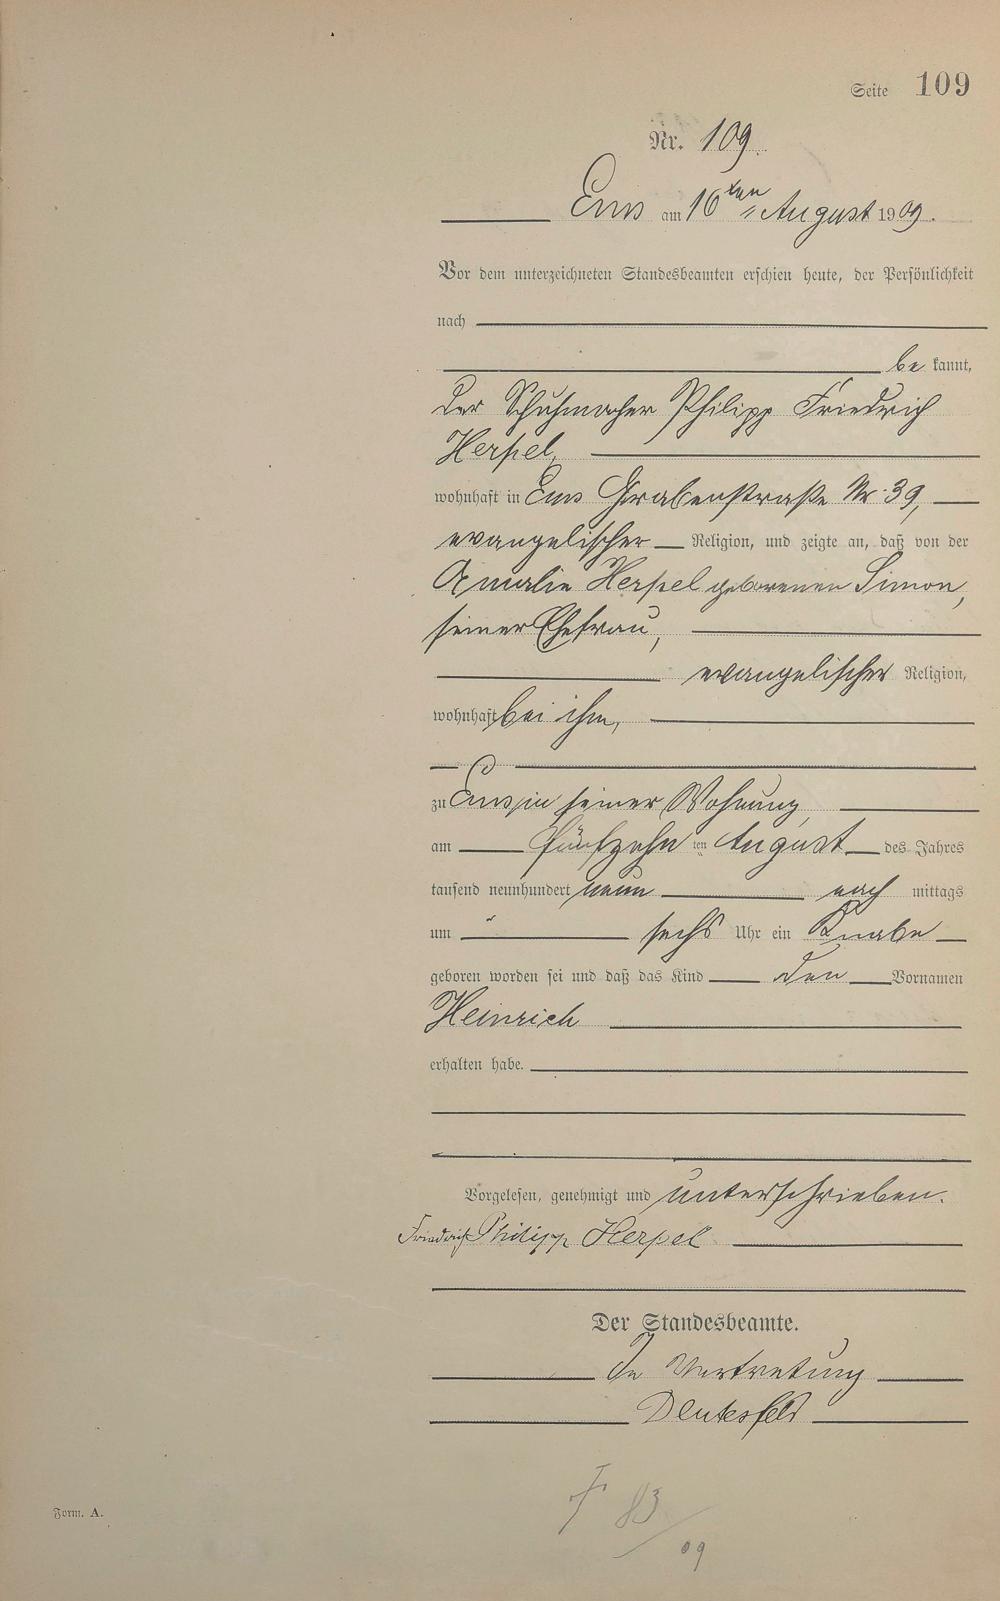 Seite 109
Nr. 109.
Ems am 16ten August 1909.
Vor dem unterzeichneten Standesbeamten erschien heute, der Persönlichkeit
nach
be kannt,
der Schuhmacher Philipp Friedrich
Herpel,
wohnhaft in Ems Grabenstraße Nr. 39,
evangelischer Religion, und zeigte an, daß von der
Amalie Herpel geborenen Simon,
seiner Ehefrau,
evangelischer Religion,
wohnhaft bei ihm,
zu Ems, in seiner Wohnung,
am fünfzehn ten August des Jahres
tausend neunhundert neun nach mittags
um sechs Uhr ein Knabe
geboren worden sei und daß das Kind den Vornamen
Heinrich
erhalten habe.
Vorgelesen, genehmigt und unterschrieben.
Friedrich Philipp Herpel
Der Standesbeamte.
In Vertretung
Form. A.
F 83/09